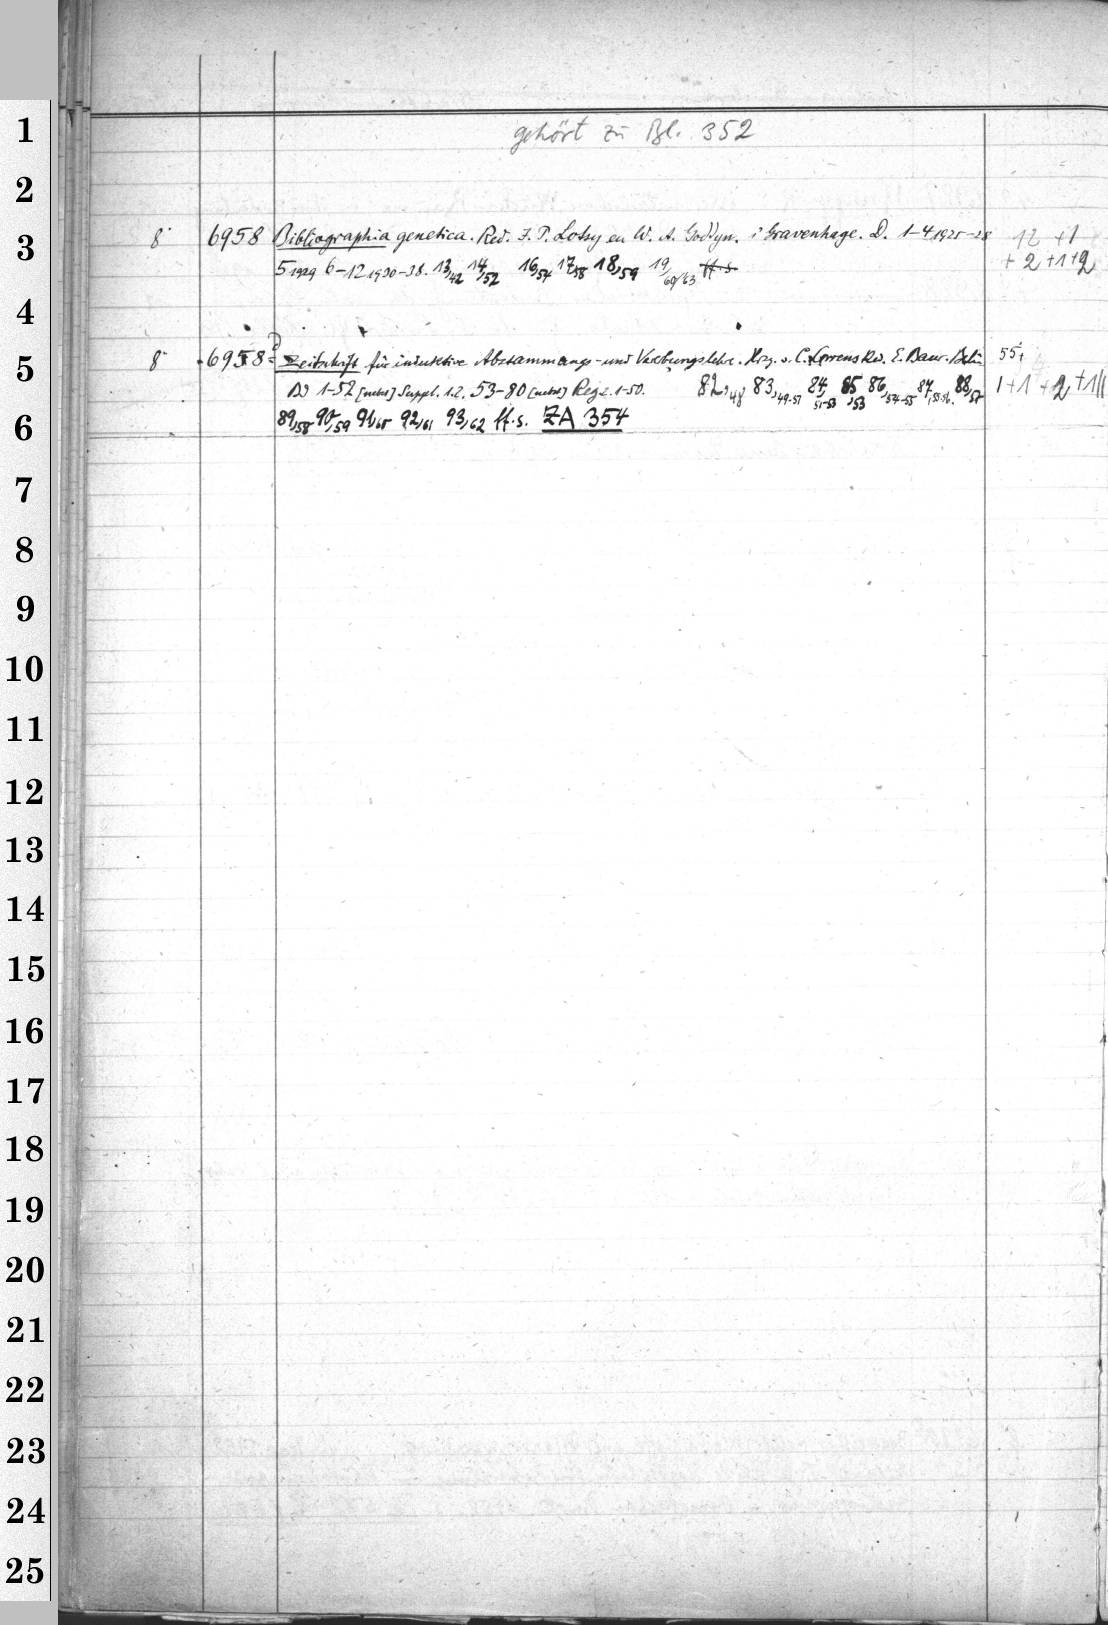 gehört zu Bl. 352
8° 6958 Bibliographia genetica. Red. J. P. Lotsy en W. A. Goddyn. 's Gravenhage. D. 1-4.1925-28 12 +1
5 1929 6-12 1930-38. 13,42 14,52 16,54 17,58 18,59 19,60/63 ff s. + 2 +1+2
8° 6958 Zeitschrift für induktive Abstammungs- und Vererbungslehre. Hrg. v. C. Correns Red. E. Baur. Berlin 55+
Bd 1-52 Suppl. 1.2. 53-80 Reg z. 1-50. 82,48 83,49-51 84,51-53 85,53 86,54-55 87,55-56. 88,57 1+1 +2+1
89,58 90,59 91,60 92,61 93,62 ff. s. ZA 354
1
2
3
4
5
6
7
8
9
10
11
12
13
14
15
16
17
18
19
20
21
22
23
24
25